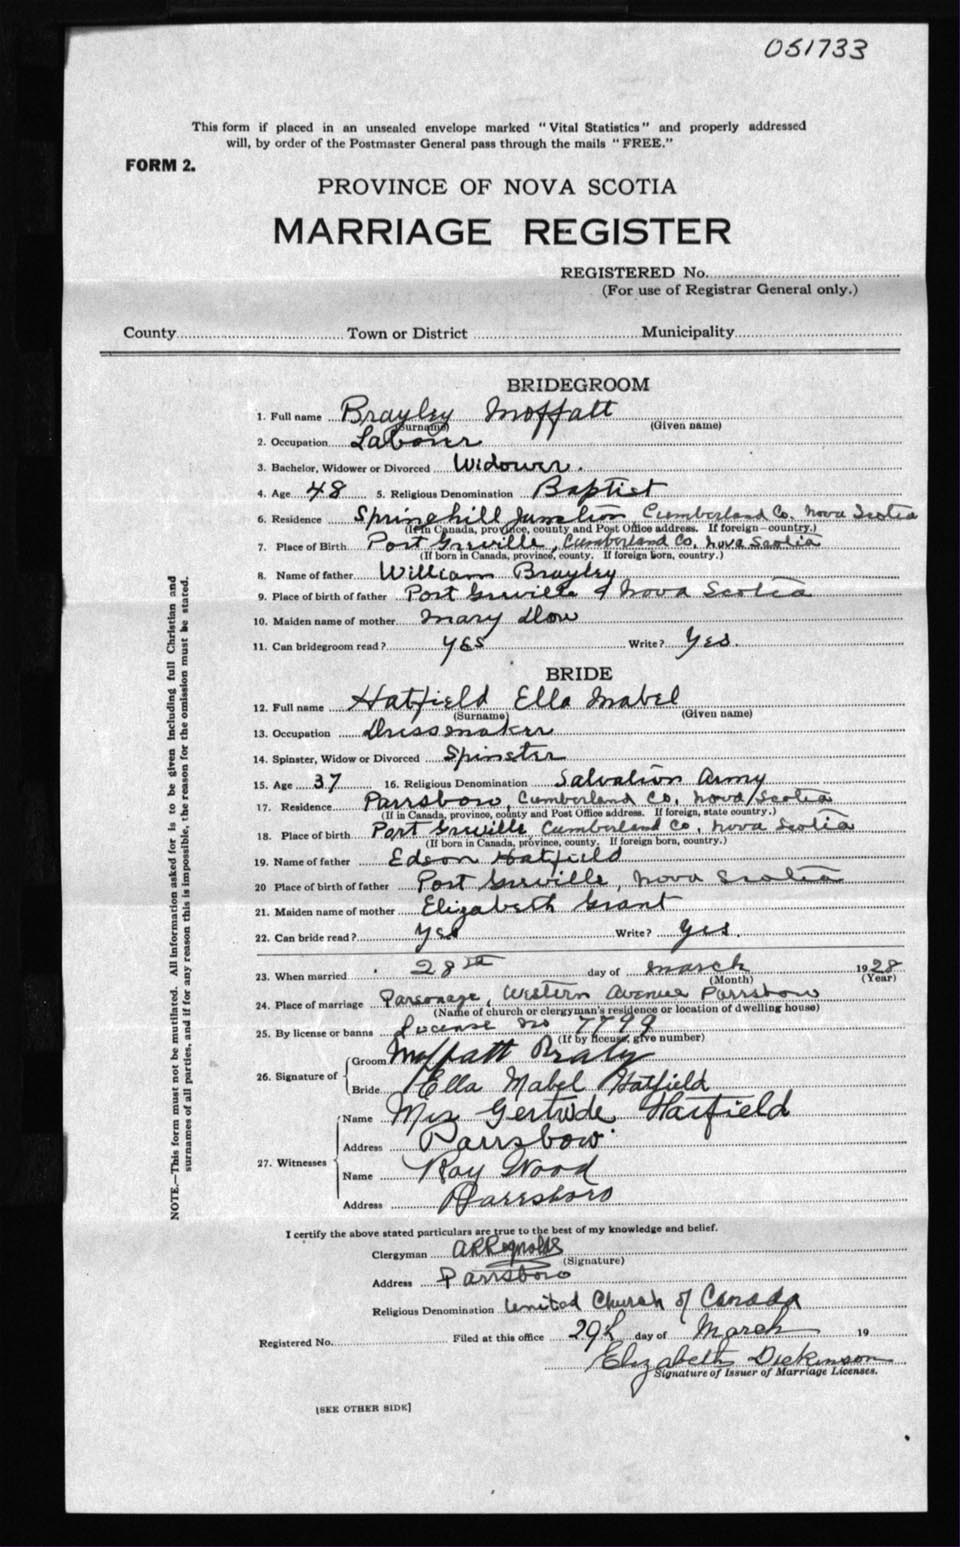 051733
This form if placed in an unsealed envelope marked "Vital Statistics" and properly addressed
will, by order of the Postmaster General pass through the mails "FREE."
FORM 2.
PROVINCE OF NOVA SCOTIA
MARRIAGE REGISTER
REGISTERED No.
(For use of Registrar General only.)
County Town or District Municipality
BRIDEGROOM
1. Full name Brayley Moffatt
(Surname) (Given name)
2. Occupation Labour
3. Bachelor, Widower or Divorced Widower.
4. Age 48 5. Religious Denomination Baptist
6. Residence Springhill Junction Cumberland Co. Nova Scotia
(If in Canada, province, county and Post Office address. If foreign—country.)
7. Place of Birth Port Greville, Cumberland Co, Nova Scotia
(If born in Canada, province, county. If foreign born, country.)
8. Name of father William Brayley
9. Place of birth of father Port Greville Nova Scotia
10. Maiden name of mother Mary
11. Can bridegroom read? yes Write? Yes.
BRIDE
12. Full name Hatfield Ella Mabel
(Surname) (Given name)
13. Occupation Dressmaker
14. Spinster, Widow or Divorced Spinster
15. Age 37 16. Religious Denomination Salvation Army
17. Residence Parrsboro, Cumberland Co, Nova Scotia
(If in Canada, province, county and Post Office address. If foreign, state country.)
18. Place of birth Port Greville Cumberland Co, Nova Scotia
(If born in Canada, province, county. If foreign born, country.)
19. Name of father Edson Hatfield
20 Place of birth of father Port Greville, Nova Scotia
21. Maiden name of mother Elizabeth Grant
22. Can bride read? yes Write? yes.
23. When married 28th day of March 1928
(Month) (Year)
24. Place of marriage Parsonage, Western Avenue Parrsboro
(Name of church or clergyman's residence or location of dwelling house)
25. By license or banns License no 7799
(If by license, give number)
26. Signature of Groom Moffatt
Bride Ella Mabel Hatfield
27. Witnesses Name Mrs Gertrude Hatfield
Address Parrsboro
Name Roy Wood
Address Parrsboro
I certify the above stated particulars are true to the best of my knowledge and belief.
Clergyman Reynolds
(Signature)
Address Parrsboro
Religious Denomination United Church of Canada
Registered No. Filed at this office 29th day of March 19
Elizabeth Dickinson
Signature of Issuer of Marriage Licenses.
[SEE OTHER SIDE]
NOTE.—This form must not be mutilated. All information asked for is to be given including full Christian and
surnames of all parties, and if for any reason this is impossible, the reason for the omission must be stated.